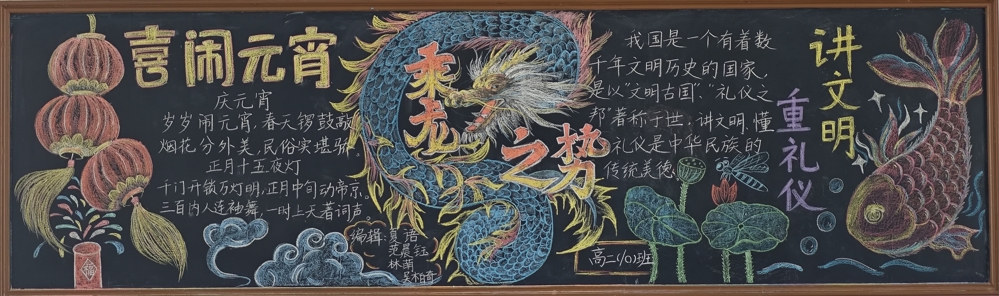 喜闹元宵
庆元宵
岁岁闹元宵，春天锣鼓敲
烟花分外美，民俗实堪骄
正月十五夜灯
千门开锁万灯明，正月中旬动帝京
三百内人连袖舞，一时上天著词声
编辑：
乘龙
之势
我国是一个有着数
千年文明历史的国家，
是以“文明古国”、“礼仪之
邦”著称于世，讲文明，懂
礼仪是中华民族的
传统美德
高二(10)班
讲文明
重礼仪